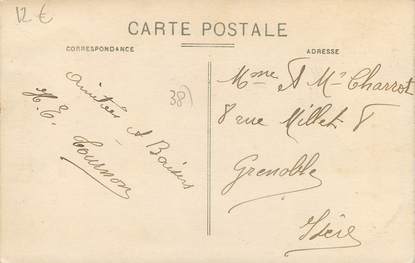 12 €
CARTE POSTALE
CORRESPONDANCE
ADRESSE
Amitiés et Baisers
H. E.
Tournon
38)
Mme et Mr Charrot
8 rue Millet 8
Grenoble
Isère